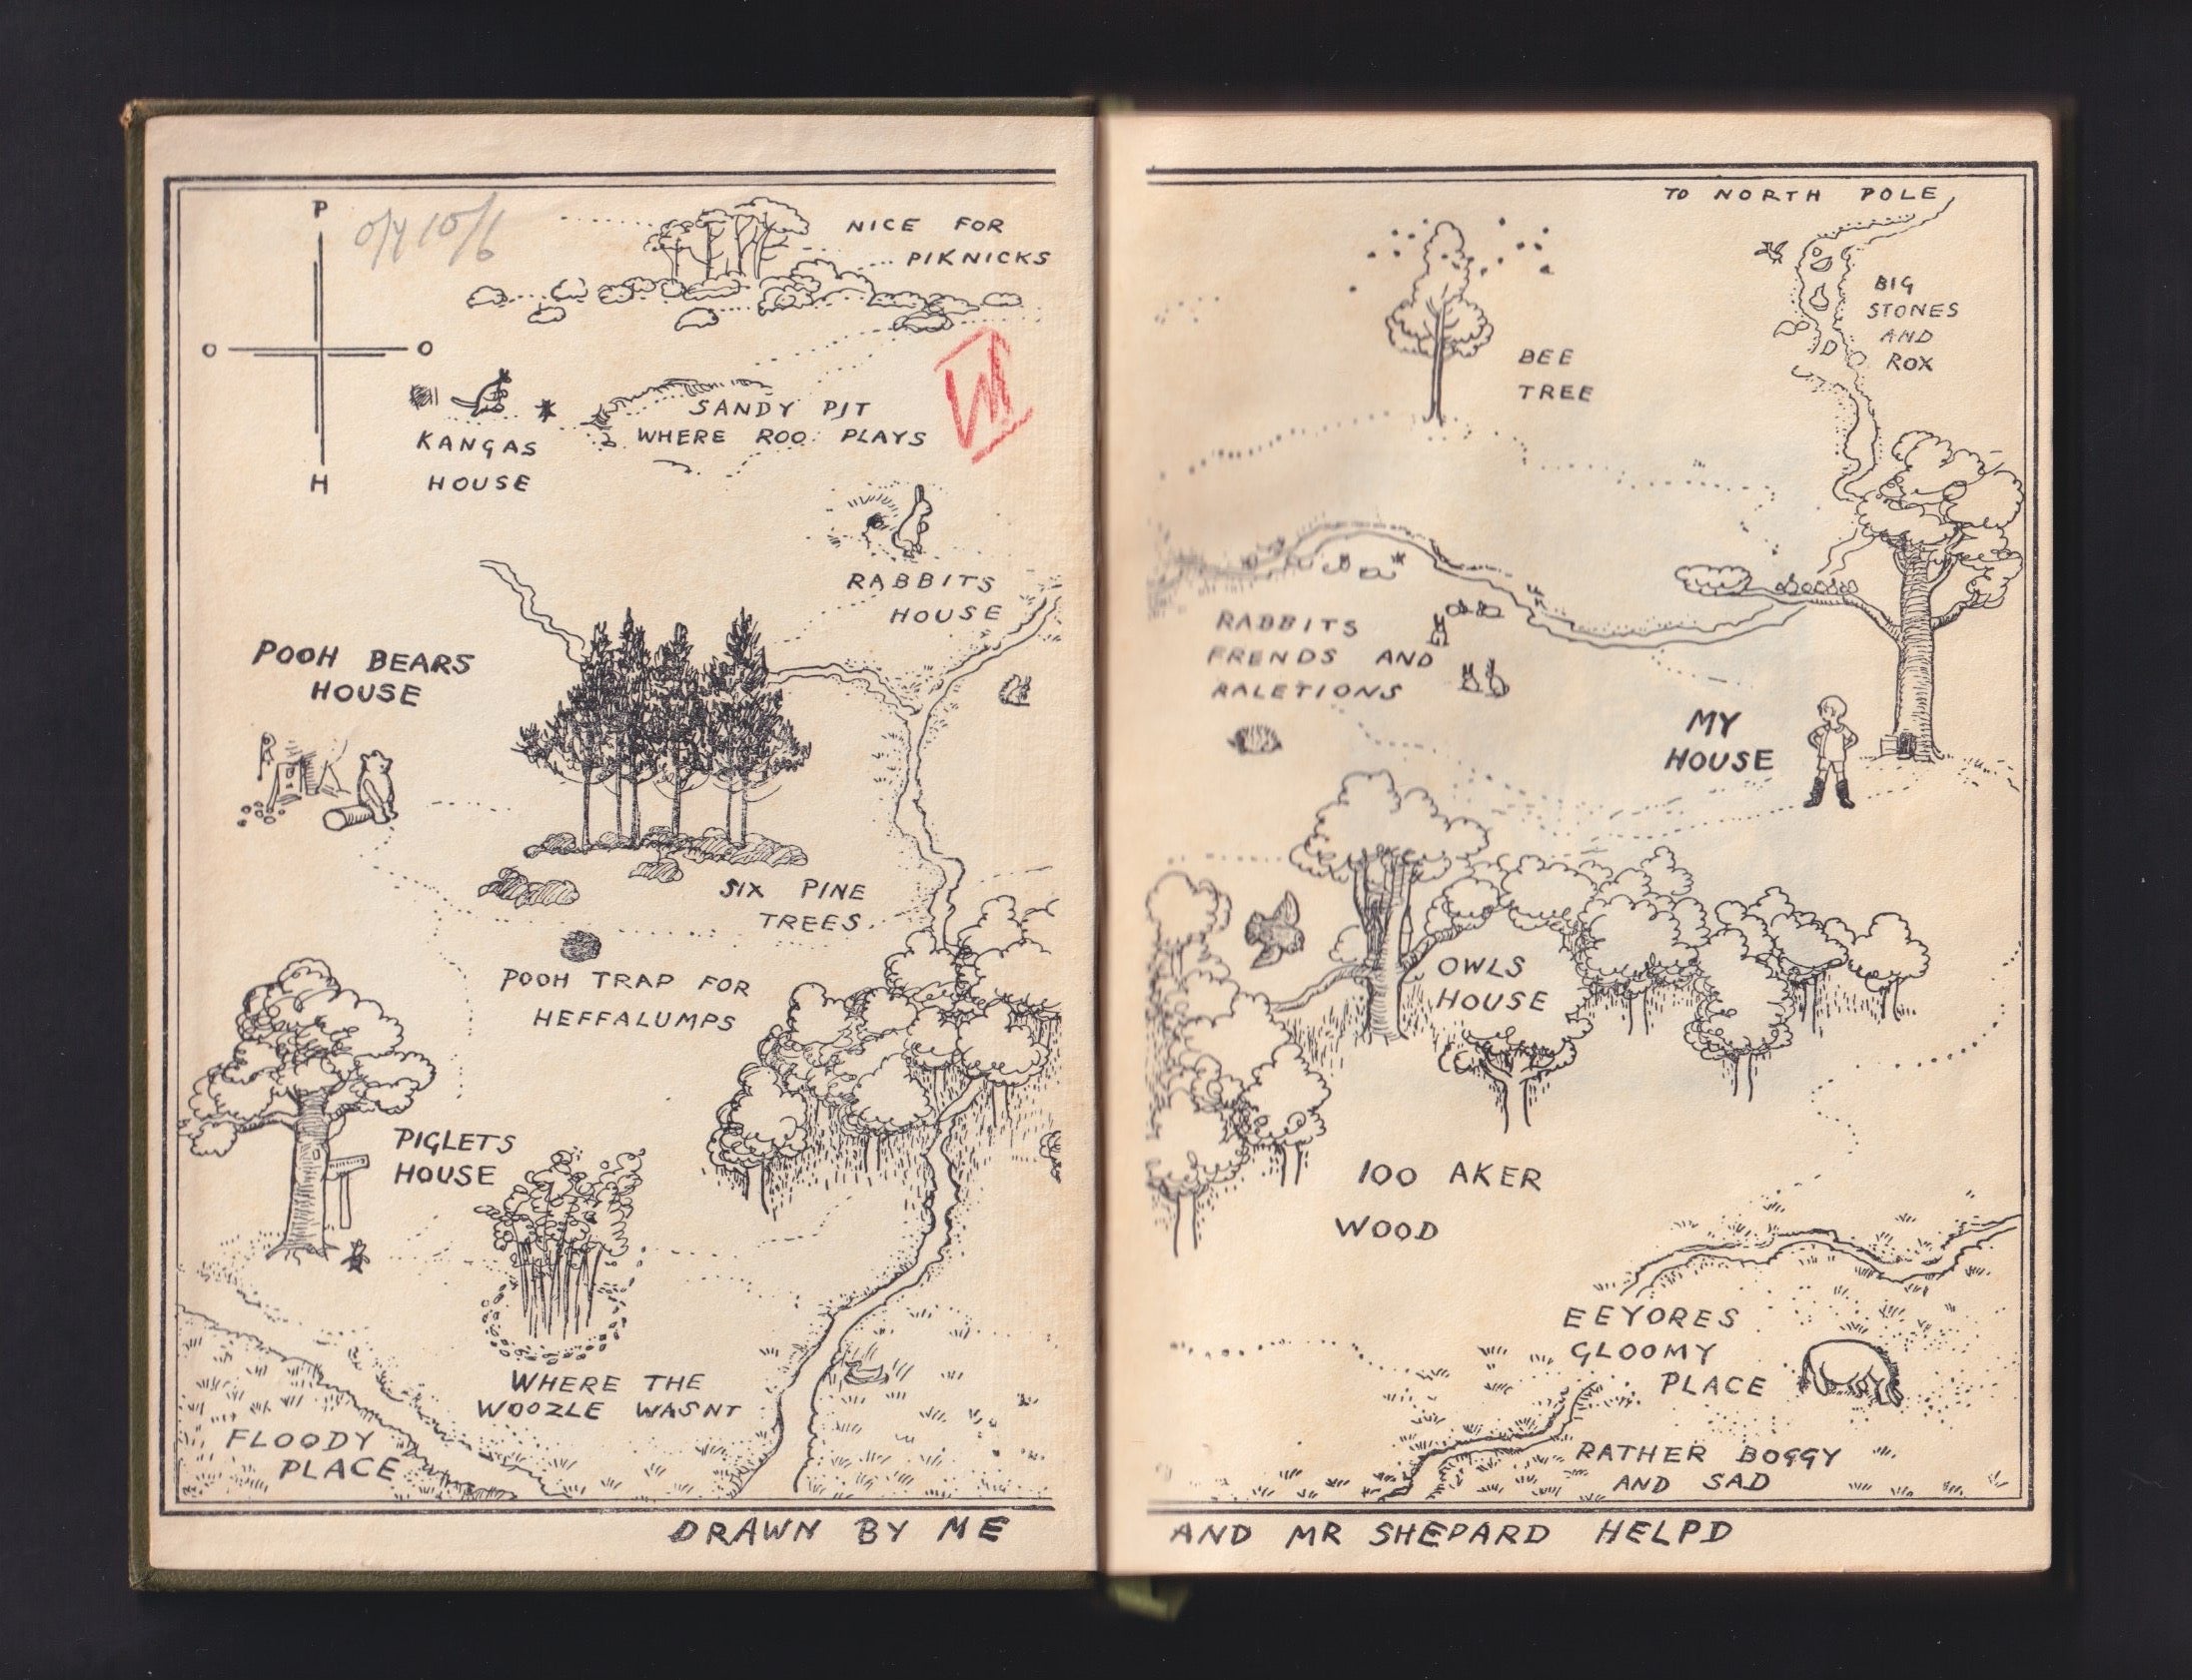 P
O
O
H
NICE FOR
PIKNICKS
KANGAS
HOUSE
SANDY PIT
WHERE ROO PLAYS
RABBITS
HOUSE
POOH BEARS
HOUSE
SIX PINE
TREES.
POOH TRAP FOR
HEFFALUMPS
PIGLETS
HOUSE
WHERE THE
WOOZLE WASNT
FLOODY
PLACE
DRAWN BY ME
TO NORTH POLE
BIG
STONES
AND
ROX
BEE
TREE
RABBITS
FRENDS AND
RALETIONS
MY
HOUSE
OWLS
HOUSE
100 AKER
WOOD
EEYORES
GLOOMY
PLACE
RATHER BOGGY
AND SAD
AND MR SHEPARD HELPD